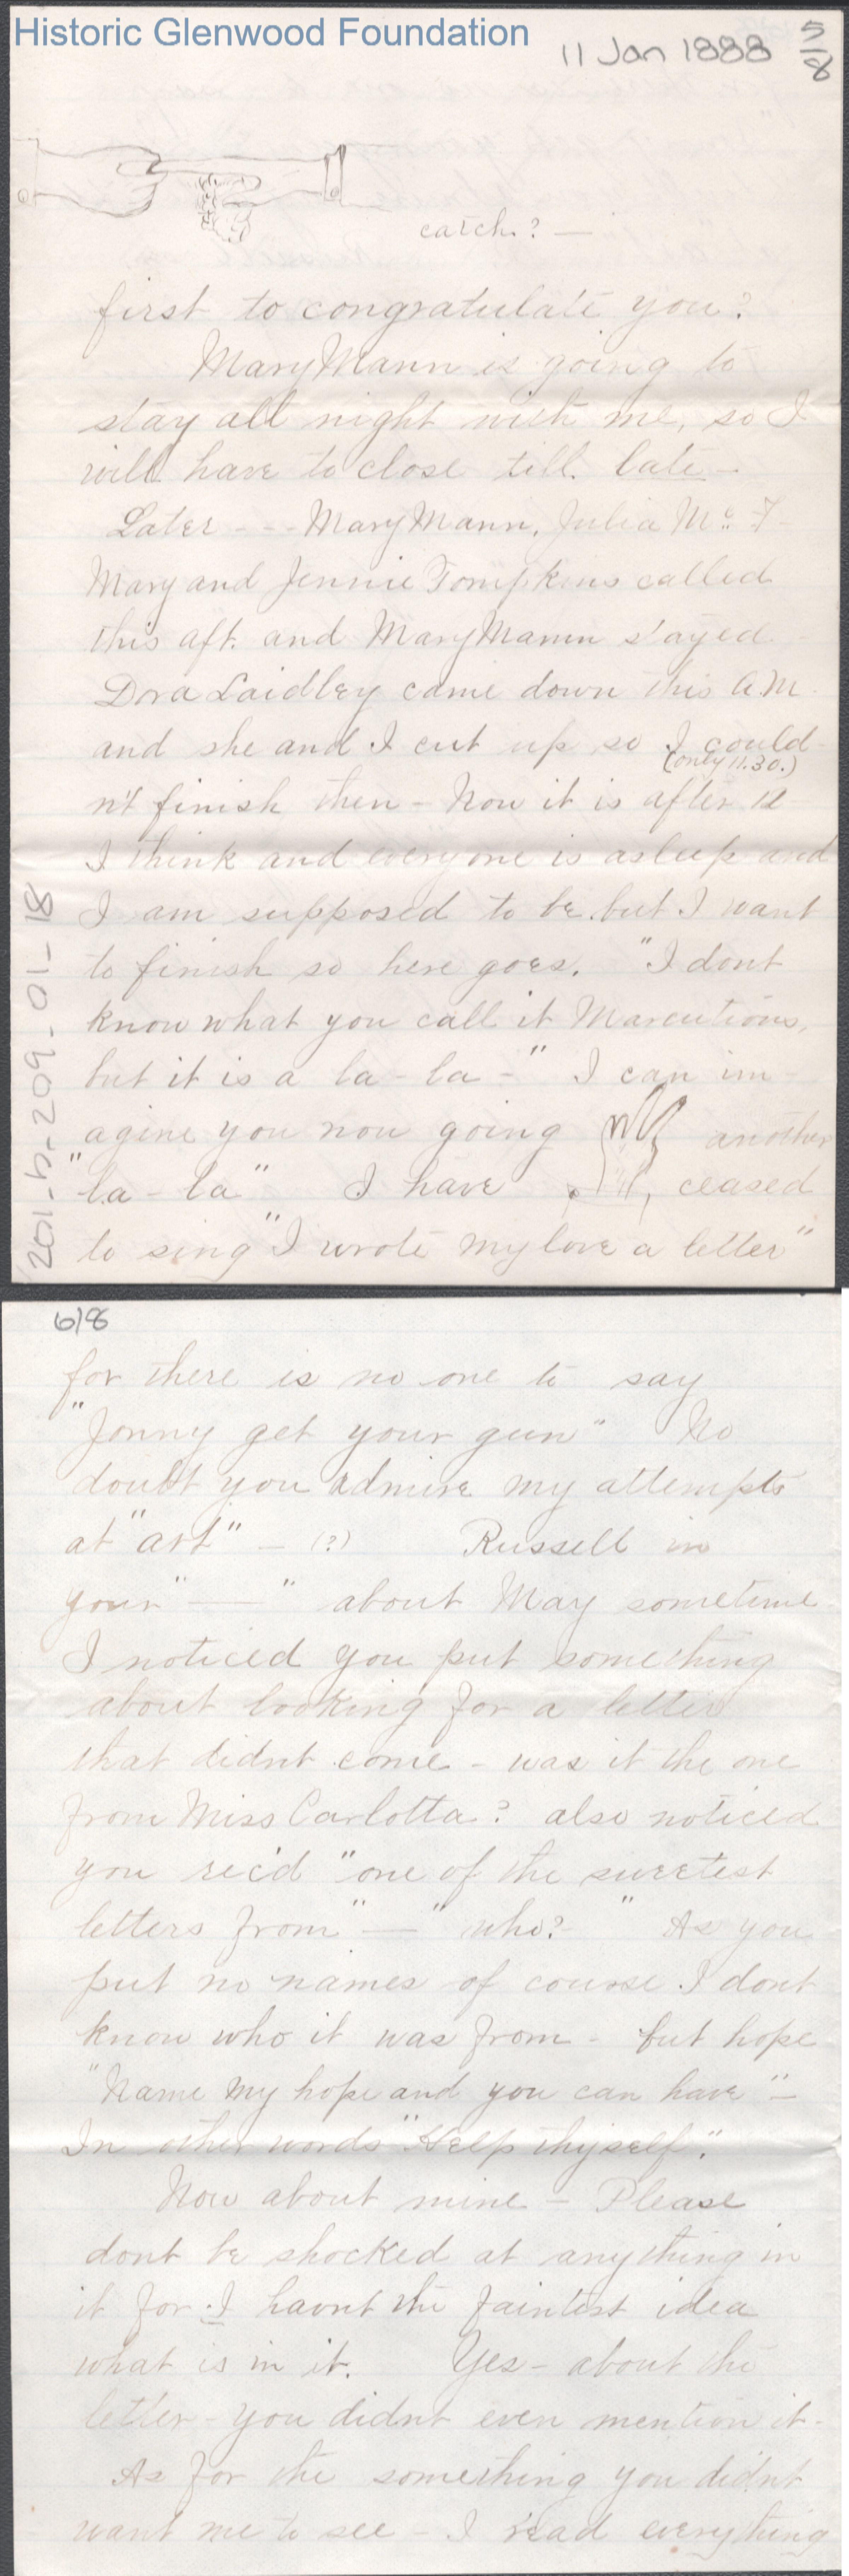 Historic Glenwood Foundation
11 Jan 1888 5/8
catch? —
first to congratulate you?
Mary Mann is going to
stay all night with me, so I
will have to close till late —
Later - - - Mary Mann, Julia Mc F
Mary and Jennie Tompkins called
this aft. and Mary Mann stayed
Dora Laidley came down this A.M.
and she and I cut up so I could-
(only 11.30.)
n't finish then - Now it is after 12
I think and everyone is asleep and
I am supposed to be but I want
to finish so here goes. "I dont
know what you call it
but it is a la-la-" I can im-
agine you now going another
"la-la" I have ceased
to sing "I wrote my love a letter"
201-b-209-01-18
6/8
for there is no one to say
"Jonny get your gun" No
doubt you admire my attempts
at "art" - (?) Russell in
your "——" about May sometime
I noticed you put something
about looking for a letter
that didnt come - was it the one
from Miss Carlotta? also noticed
you rec'd "one of the sweetest
letters from "—" who?" As you
put no names of course I dont
know who it was from - but hope
"Name my hope and you can have" -
In other words "Help thyself".
Now about mine - Please
dont be shocked at anything in
it for I havnt the faintest idea
what is in it. Yes - about the
letter - you didnt even mention it -
As for the something you didnt
want me to see - I read everything